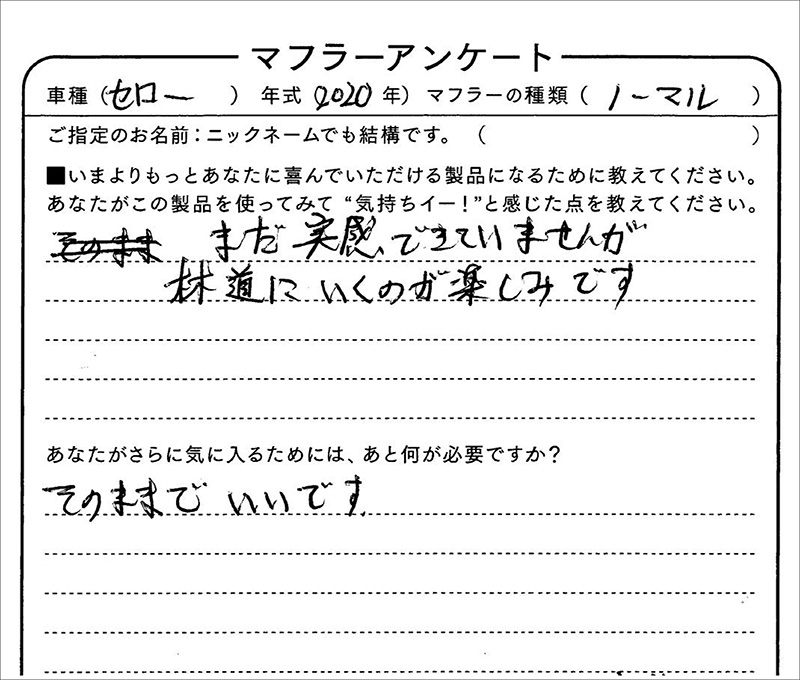 マフラーアンケート
車種（セロー　）年式（2020年）マフラーの種類（ノーマル　）
ご指定のお名前：ニックネームでも結構です。（　）
■いまよりもっとあなたに喜んでいただける製品になるために教えてください。
あなたがこの製品を使ってみて“気持ちイー！”と感じた点を教えてください。
そのまま　まだ実感できていませんが
林道にいくのが楽しみです
あなたがさらに気に入るためには、あと何が必要ですか？
そのままで いいです